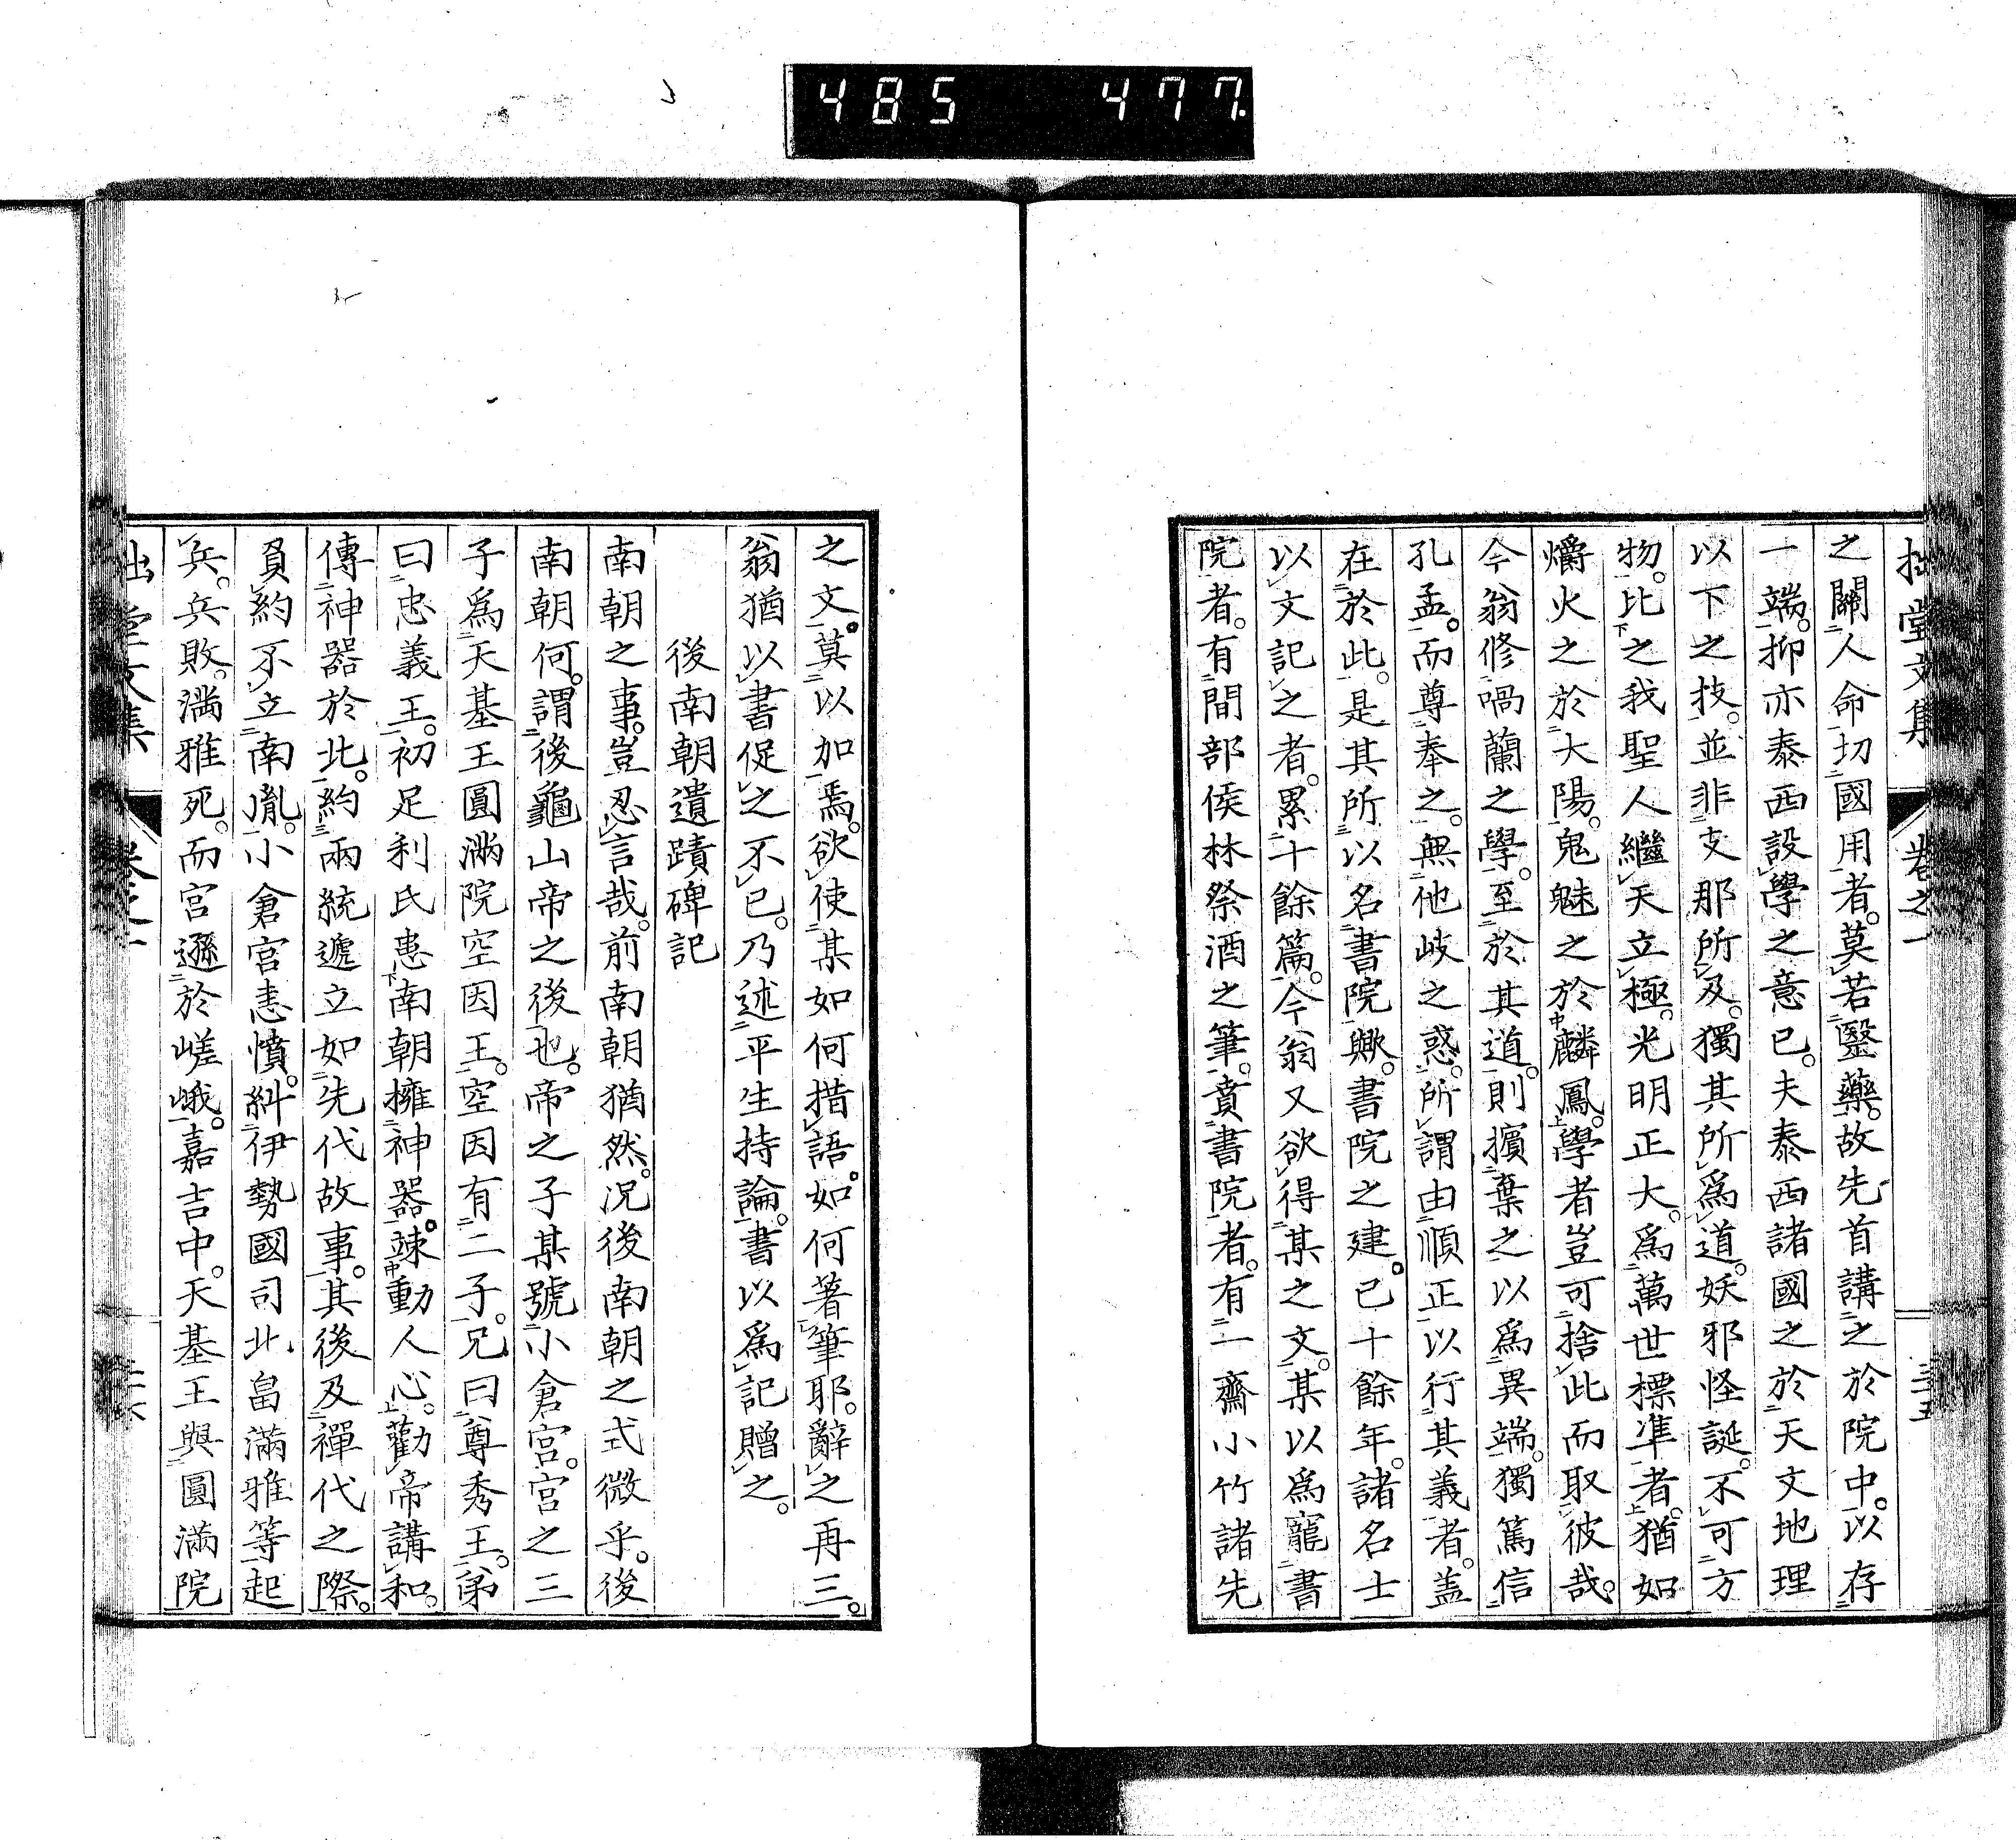 485 477
拙堂文集 卷之一 三十五
之關人命切國用者。莫若毉藥。故先首講之於院中。以存
一端。抑亦泰西設學之意已。夫泰西諸國之於天文地理
以下之技。並非支那所及。獨其所爲道。妖邪怪誕。不可方
物。比之我聖人繼天立極。光明正大。爲萬世標準者。猶如
爝火之於大陽。鬼魅之於麟鳳。學者豈可捨此而取彼哉。
今翁修喎蘭之學。至於其道。則擯棄之以爲異端。獨篤信
孔孟。而尊奉之。無他岐之惑。所謂由順正以行其義者。盖
在於此。是其所以名書院歟。書院之建。已十餘年。諸名士
以文記之者。累十餘篇。今翁又欲得某之文。某以爲寵書
院者。有間部侯林祭酒之筆。賁書院者。有一齋小竹諸先
之文。莫以加焉。欲使某如何措語。如何著筆耶。辭之再三。
翁猶以書促之不已。乃述平生持論。書以爲記贈之。
後南朝遺蹟碑記
南朝之事。豈忍言哉。前南朝猶然。况後南朝之式微乎。後
南朝何。謂後龜山帝之後也。帝之子某號小倉宮。宮之三
子爲天基王圓滿院空因王。空因有二子。兄曰尊秀王。弟
曰忠義王。初足利氏患南朝擁神器竦動人心。勸帝講和。
傳神器於北。約兩統遞立如先代故事。其後及禪代之際。
負約不立南胤。小倉宮恚憤。糾伊勢國司北畠滿雅等起
兵。兵敗。滿雅死。而宮遜於嵯峨。嘉吉中。天基王與圓滿院
拙堂文集 卷之一 三十六